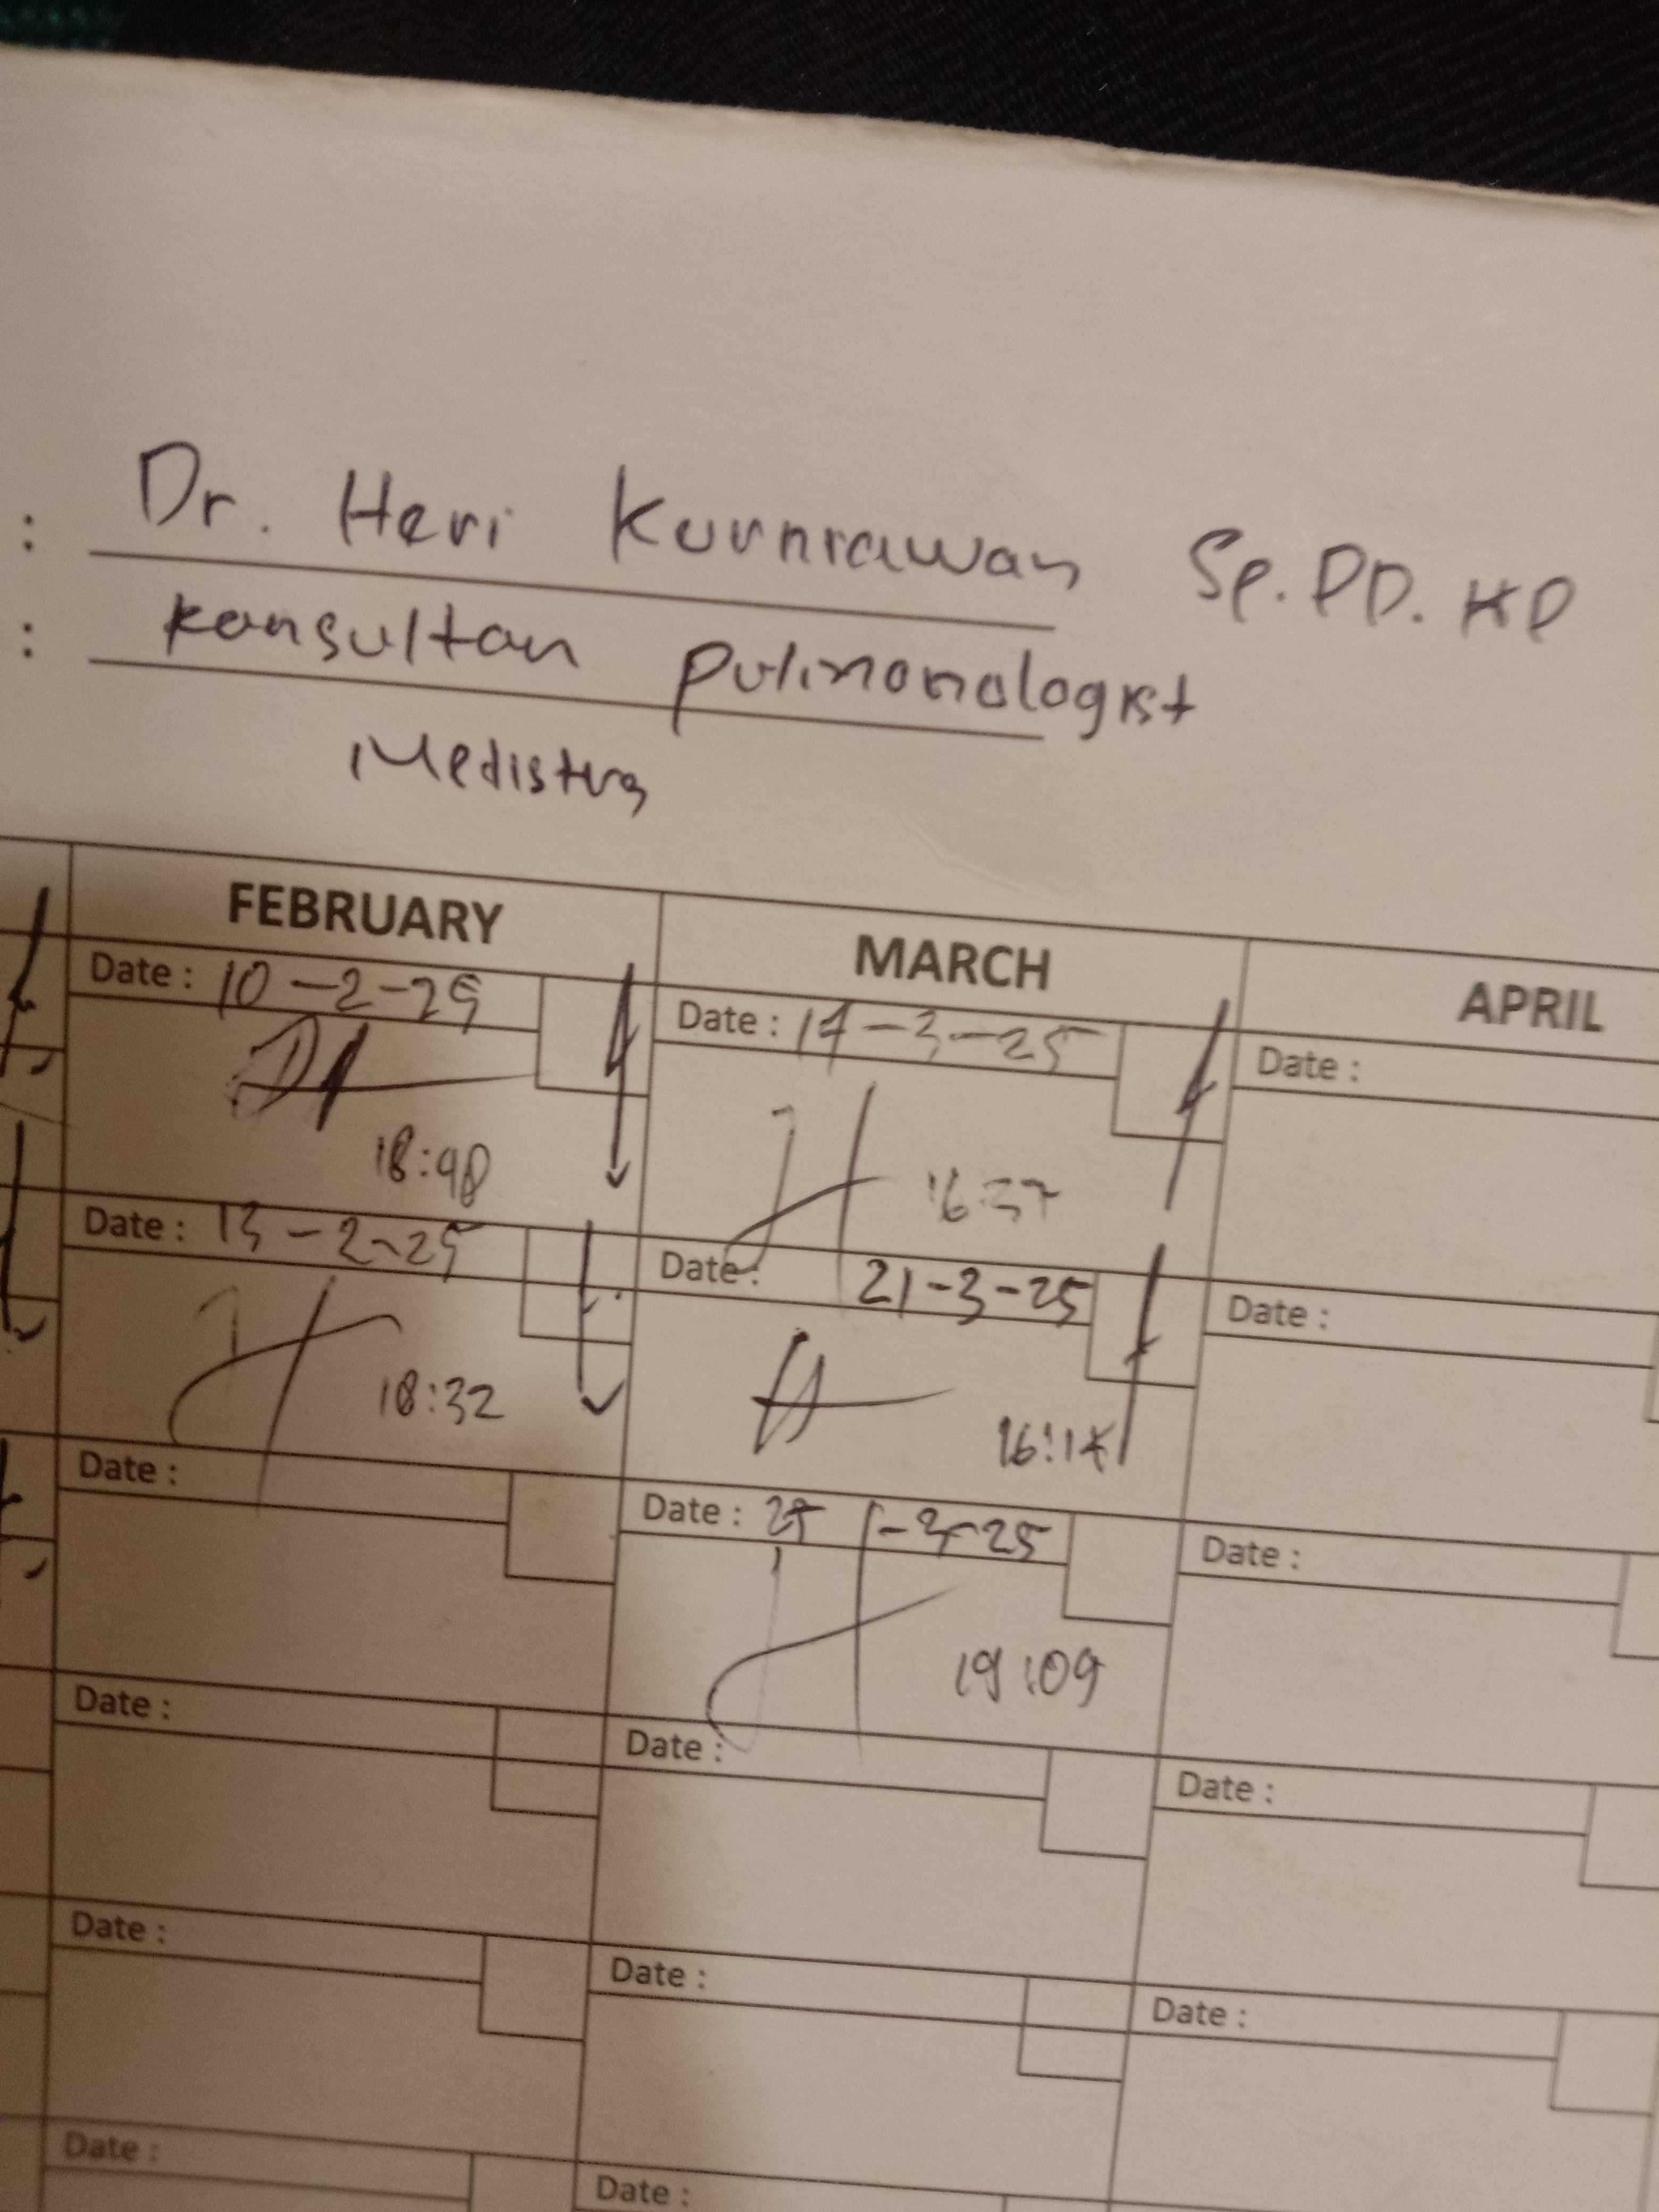 : Dr. Heri Kurniawan Sp.PD.KP
: Konsultan Pulmonologist
Medistra
FEBRUARY MARCH APRIL
Date : 10-2-25 Date : 17-3-25 Date :
18:48 16:37
Date : 13-2-25 Date : 21-3-25 Date :
18:32 16:14
Date : Date : -3-25 Date :
19:09
Date : Date : Date :
Date : Date : Date :
Date : Date :